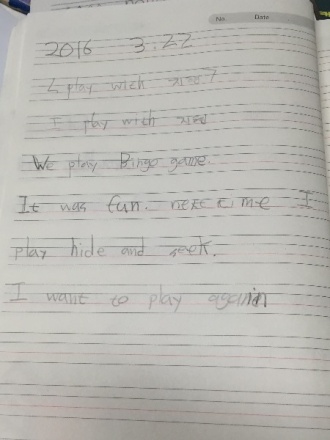 No. Date
2016 3.22
I play with
I play with
We play Bingo game.
It was fun. next time I
play hide and seek.
I want to play again